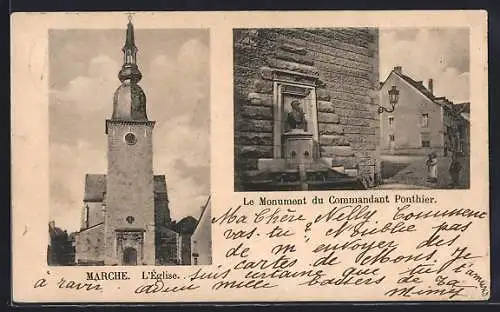 Le Monument du Commandant Ponthier.
MARCHE. L'Église.
Ma Chère Nelly, Comment
vas-tu? N'oublie pas
de m'envoyer des
cartes de Mons. Je
suis certaine que tu l'
à ravir. adieu mille baisers de ta
Mimy